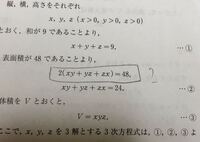 縦、横、高さをそれぞれ
x, y, z (x>0, y>0, z>0)
とおく、和が9であることより、
x+y+z=9, …①
表面積が48であることより、
2(xy+yz+zx)=48,
xy+yz+zx=24, …②
体積をVとおくと、
V=xyz, …③
ここで、x, y, zを3解とする3次方程式は、①、②、③よ